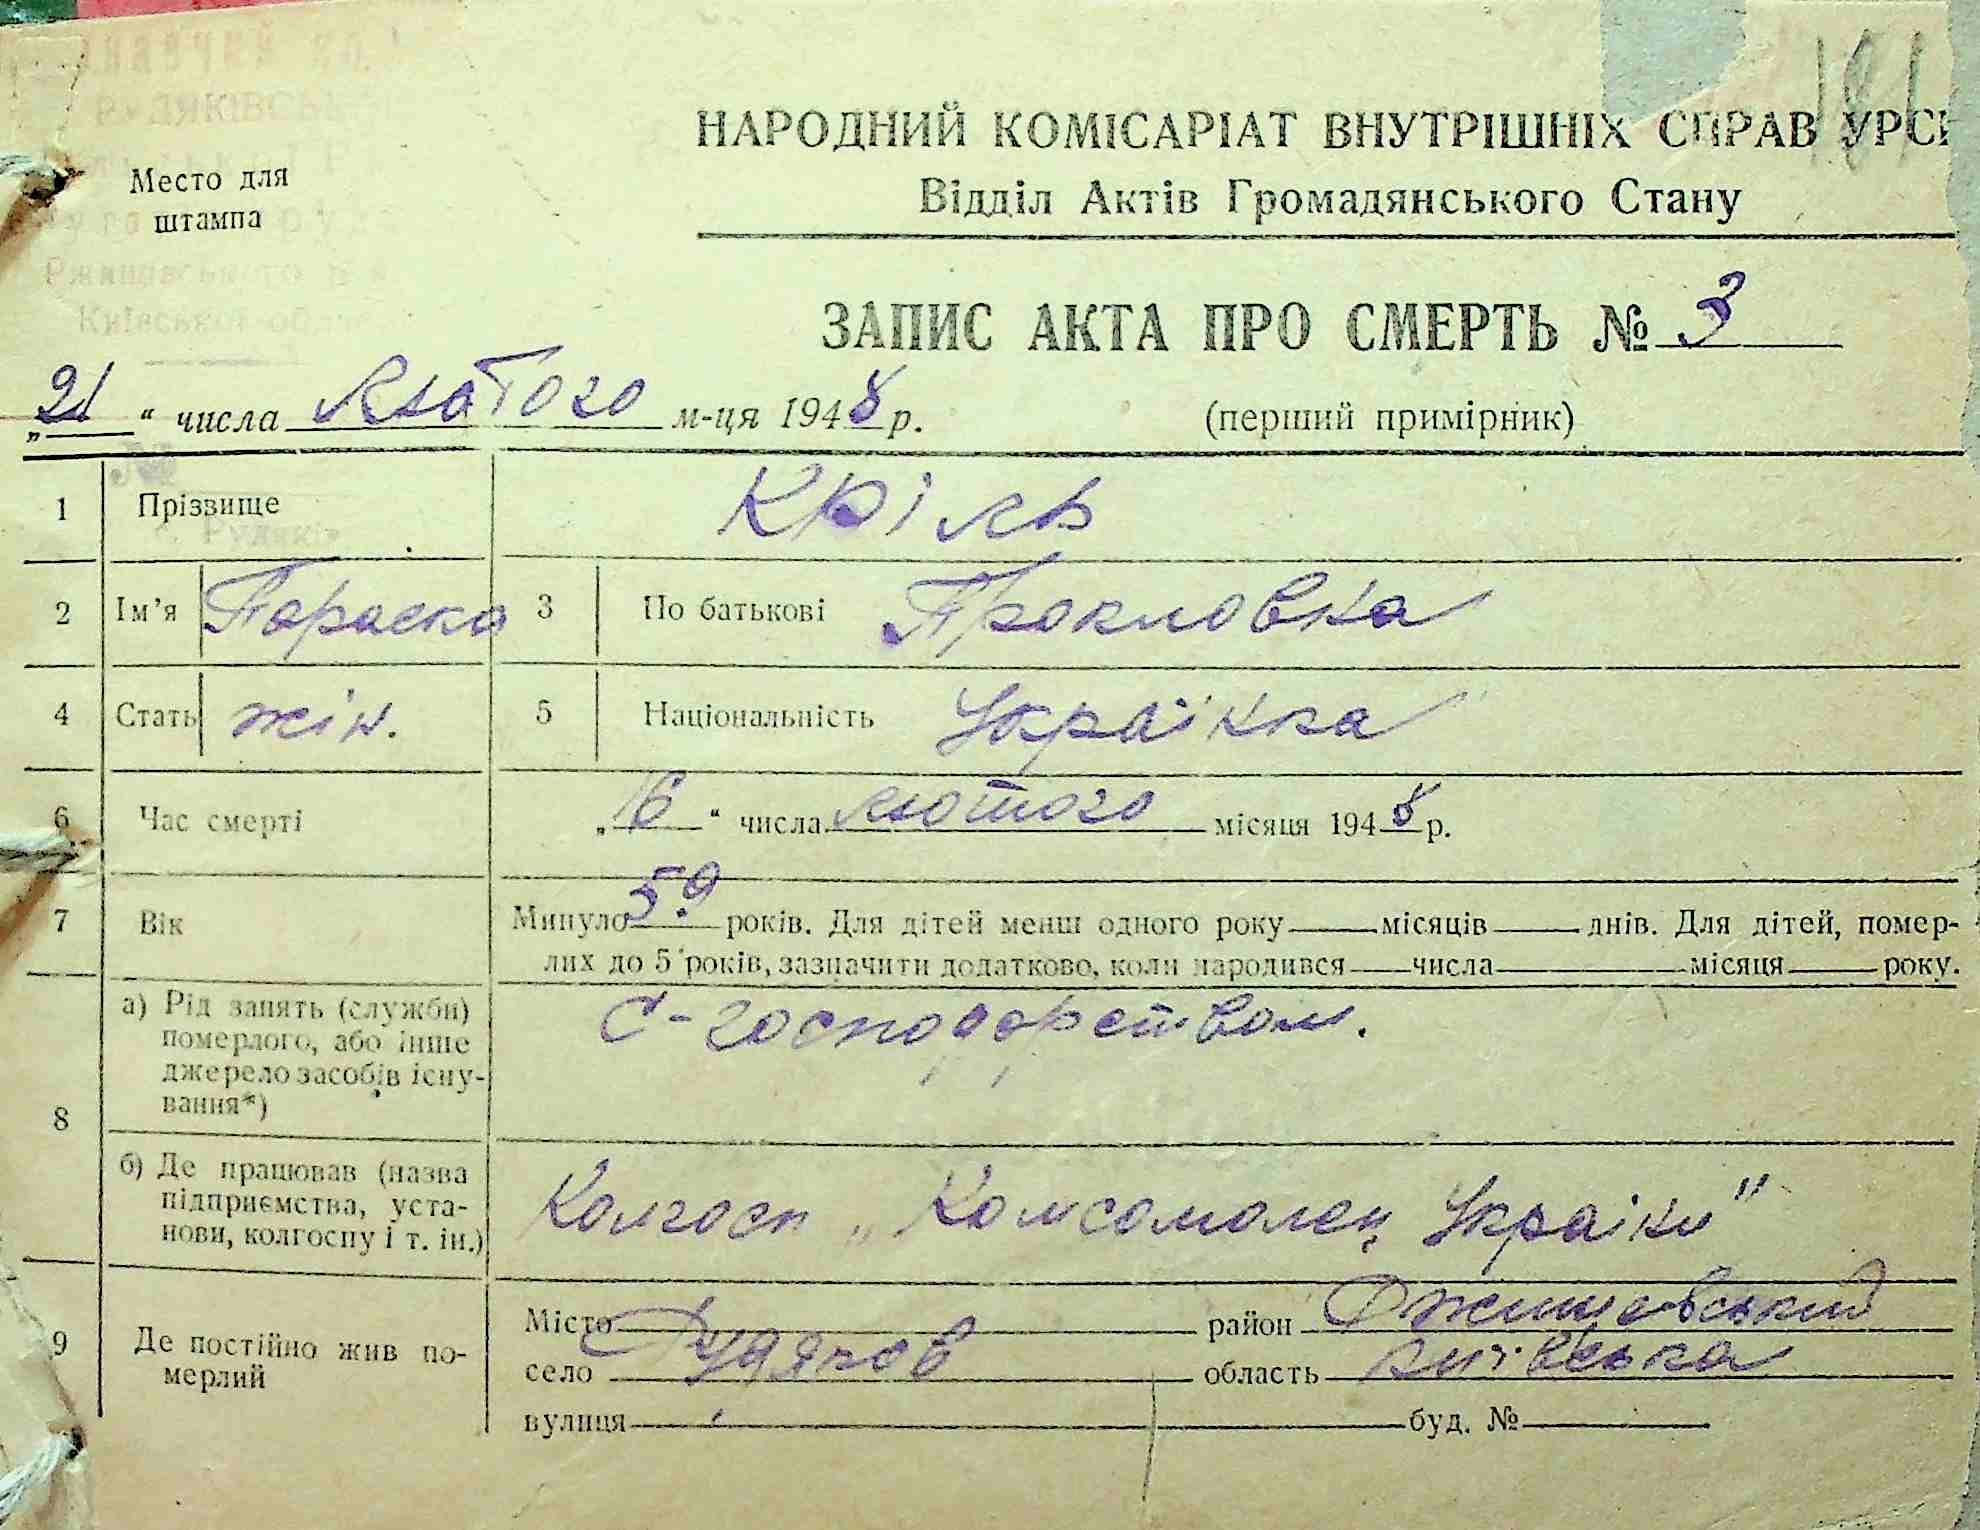 РУДЯКІВСЬ
НАРОДНИЙ КОМІСАРІАТ ВНУТРІШНІХ СПРАВ УРС
Відділ Актів Громадянського Стану
Место для
штампа
Ржищівського
Київської
ЗАПИС АКТА ПРО СМЕРТЬ № 3
„21“ числа Лютого м-ця 1948 р.
(перший примірник)
1 Прізвище Кріль
2 Ім’я Параска 3 По батькові Прокловка
4 Стать жін. 5 Національність Українка
6 Час смерті „16“ числа лютого місяця 1948 р.
7 Вік Минуло 59 років. Для дітей менш одного року місяців днів. Для дітей, помер-
лих до 5 років, зазначити додатково, коли народився числа місяця року.
8 а) Рід занять (служби)
померлого, або інше
джерело засобів існу-
вання*)
С-господарством.
б) Де працював (назва
підприємства, уста-
нови, колгоспу і т. ін.)
Колгосп „Комсомолец України"
9 Де постійно жив по-
мерлий
Місто район Ржищевський
село Рудяков область київська
вулиця буд. №